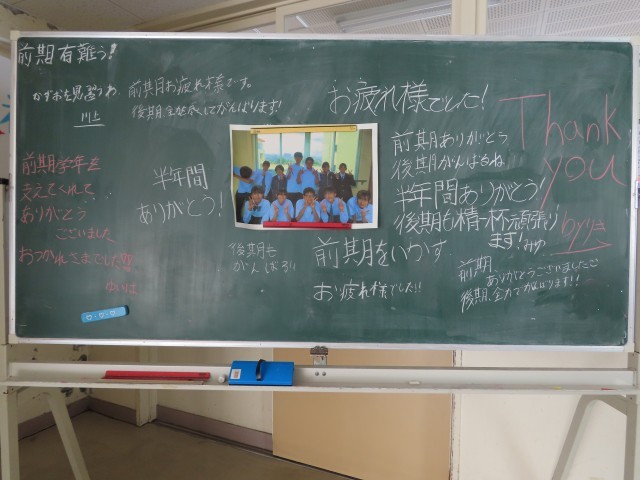 前期有難う!
かずおを見習うわ
川上
前期お疲れ様です。
後期、全力でがんばります!
お疲れ様でした!
Thank
you
前期ありがとう
後期がんばるね
半年間ありがとう!
後期も精一杯頑張り
ます!みゆ
前期学年を
支えてくれて
ありがとう
ございました
おつかれさまでした!!
半年間
ありがとう!
後期も
がんばろ!!
前期をいかす
お疲れ様でした!!
前期、
ありがとうございました
後期、全力でがんばります!!